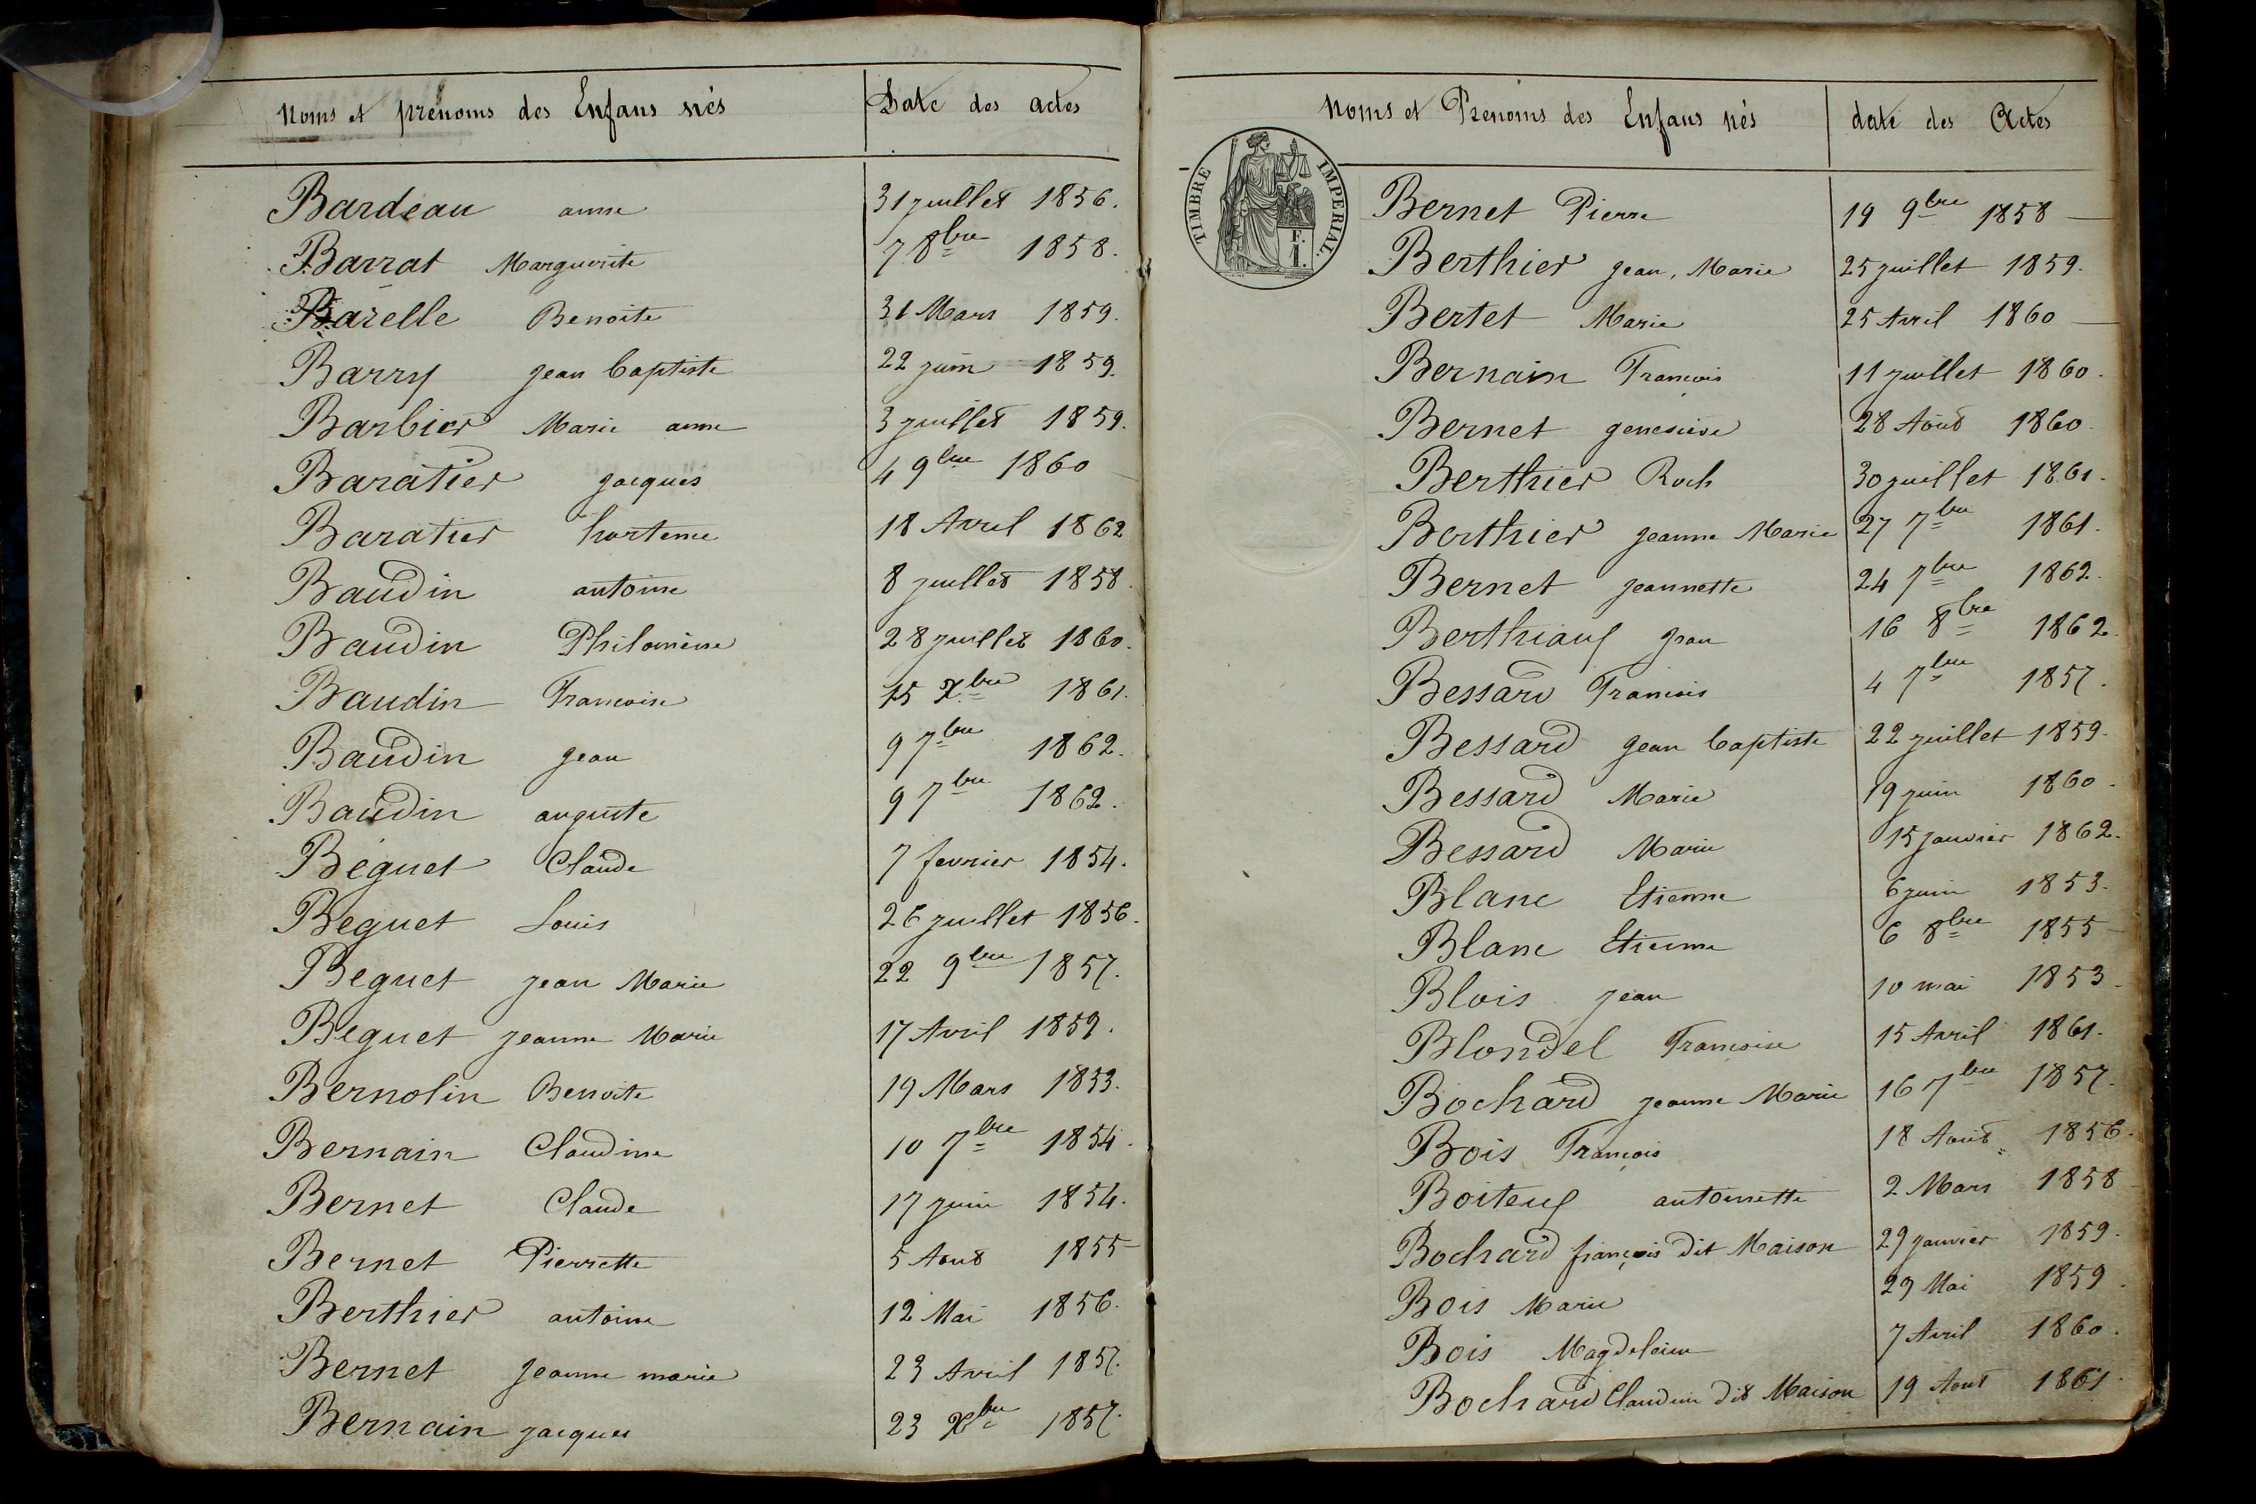 Noms et prénoms des Enfans nés Date des actes
Bardeau anne 31 juillet 1856.
Barrat Marguerite 7 8bre 1858.
Barelle Benoite 31 Mars 1859.
Barry jean baptiste 22 juin 1859.
Barbier Marie anne 3 juillet 1859.
Baratier jacques 4 9bre 1860
Baratier hortense 18 Avril 1862
Baudin antoine 8 juillet 1858.
Baudin Philomène 28 juillet 1860.
Baudin Francoise 15 Xbre 1861.
Baudin jean 9 7bre 1862.
Baudin auguste 9 7bre 1862.
Béguet Claude 7 fevrier 1854.
Beguet Louis 26 juillet 1856.
Beguet jean Marie 22 9bre 1857.
Beguet jeanne Marie 17 Avril 1859.
Bernolin Benoite 19 Mars 1853.
Bernain Claudine 10 7bre 1854.
Bernet Claude 17 juin 1854.
Bernet Pierrette 5 Aout 1855
Berthier antoine 12 Mai 1856.
Bernet jeanne marie 23 Avril 1857.
Bernain jacques 23 Xbre 1857.
Noms et Prenoms des Enfans nés date des Actes
TIMBRE IMPERIAL.
F.
1.
Bernet Pierre 19 9bre 1858
Berthier jean, Marie 25 juillet 1859.
Bertet Marie 25 Avril 1860
Bernain François 11 juillet 1860.
Bernet genevieve 28 Août 1860.
Berthier Roch 30 juillet 1861.
Berthier jeanne Marie 27 7bre 1861.
Bernet jeannette 24 7bre 1862.
Berthiauf jean 16 8bre 1862.
Bessard Francois 4 7bre 1857.
Bessard jean baptiste 22 juillet 1859.
Bessard Marie 19 juin 1860.
Bessard Marie 15 janvier 1862.
Blanc Etienne 6 juin 1853.
Blanc Etienne 6 8bre 1855
Blois jean 10 mai 1853.
Blondel Francoise 15 Avril 1861.
Bochard jeanne Marie 16 7bre 1857.
Bois François 18 Aout 1856.
Boiteuf antoinette 2 Mars 1858
Bochard françois dit Maison 29 janvier 1859.
Bois Marie 29 Mai 1859.
Bois Magdeleine 7 Avril 1860.
Bochard Claudine dit Maison 19 Aout 1861.